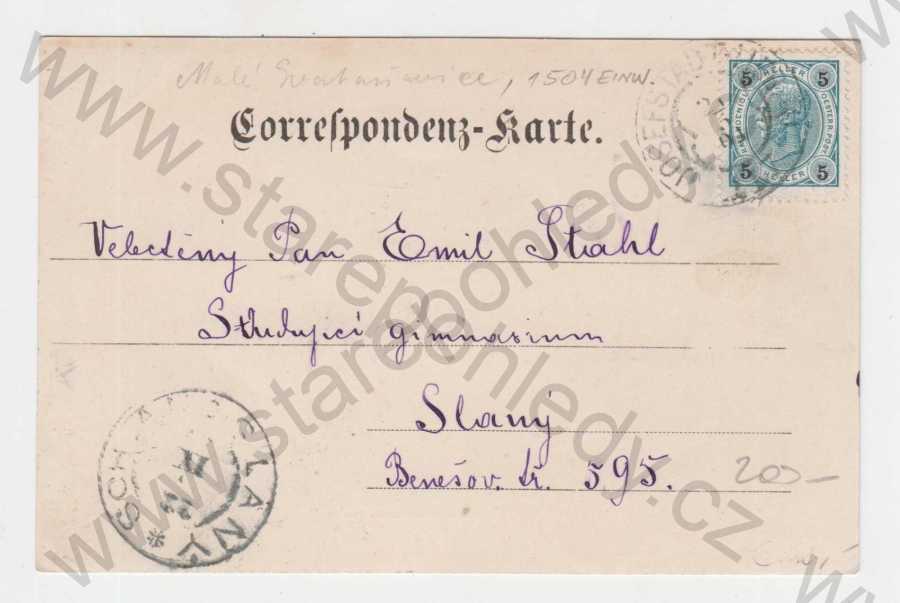 Malé Svatoňovice, 1504 EINW.
Correspondenz-Karte.
5 HELLER 5
KAIS. KOENIGL. OESTERR. POST
5 HELLER 5
JOSEFSTADT
Velectěný Pan Emil Strahl
Studující gimnasium
Slaný
Benešov. tř. 595.
200-
SCHLAN SLANÝ *
www.starepohledy.cz
www.starepohledy.cz